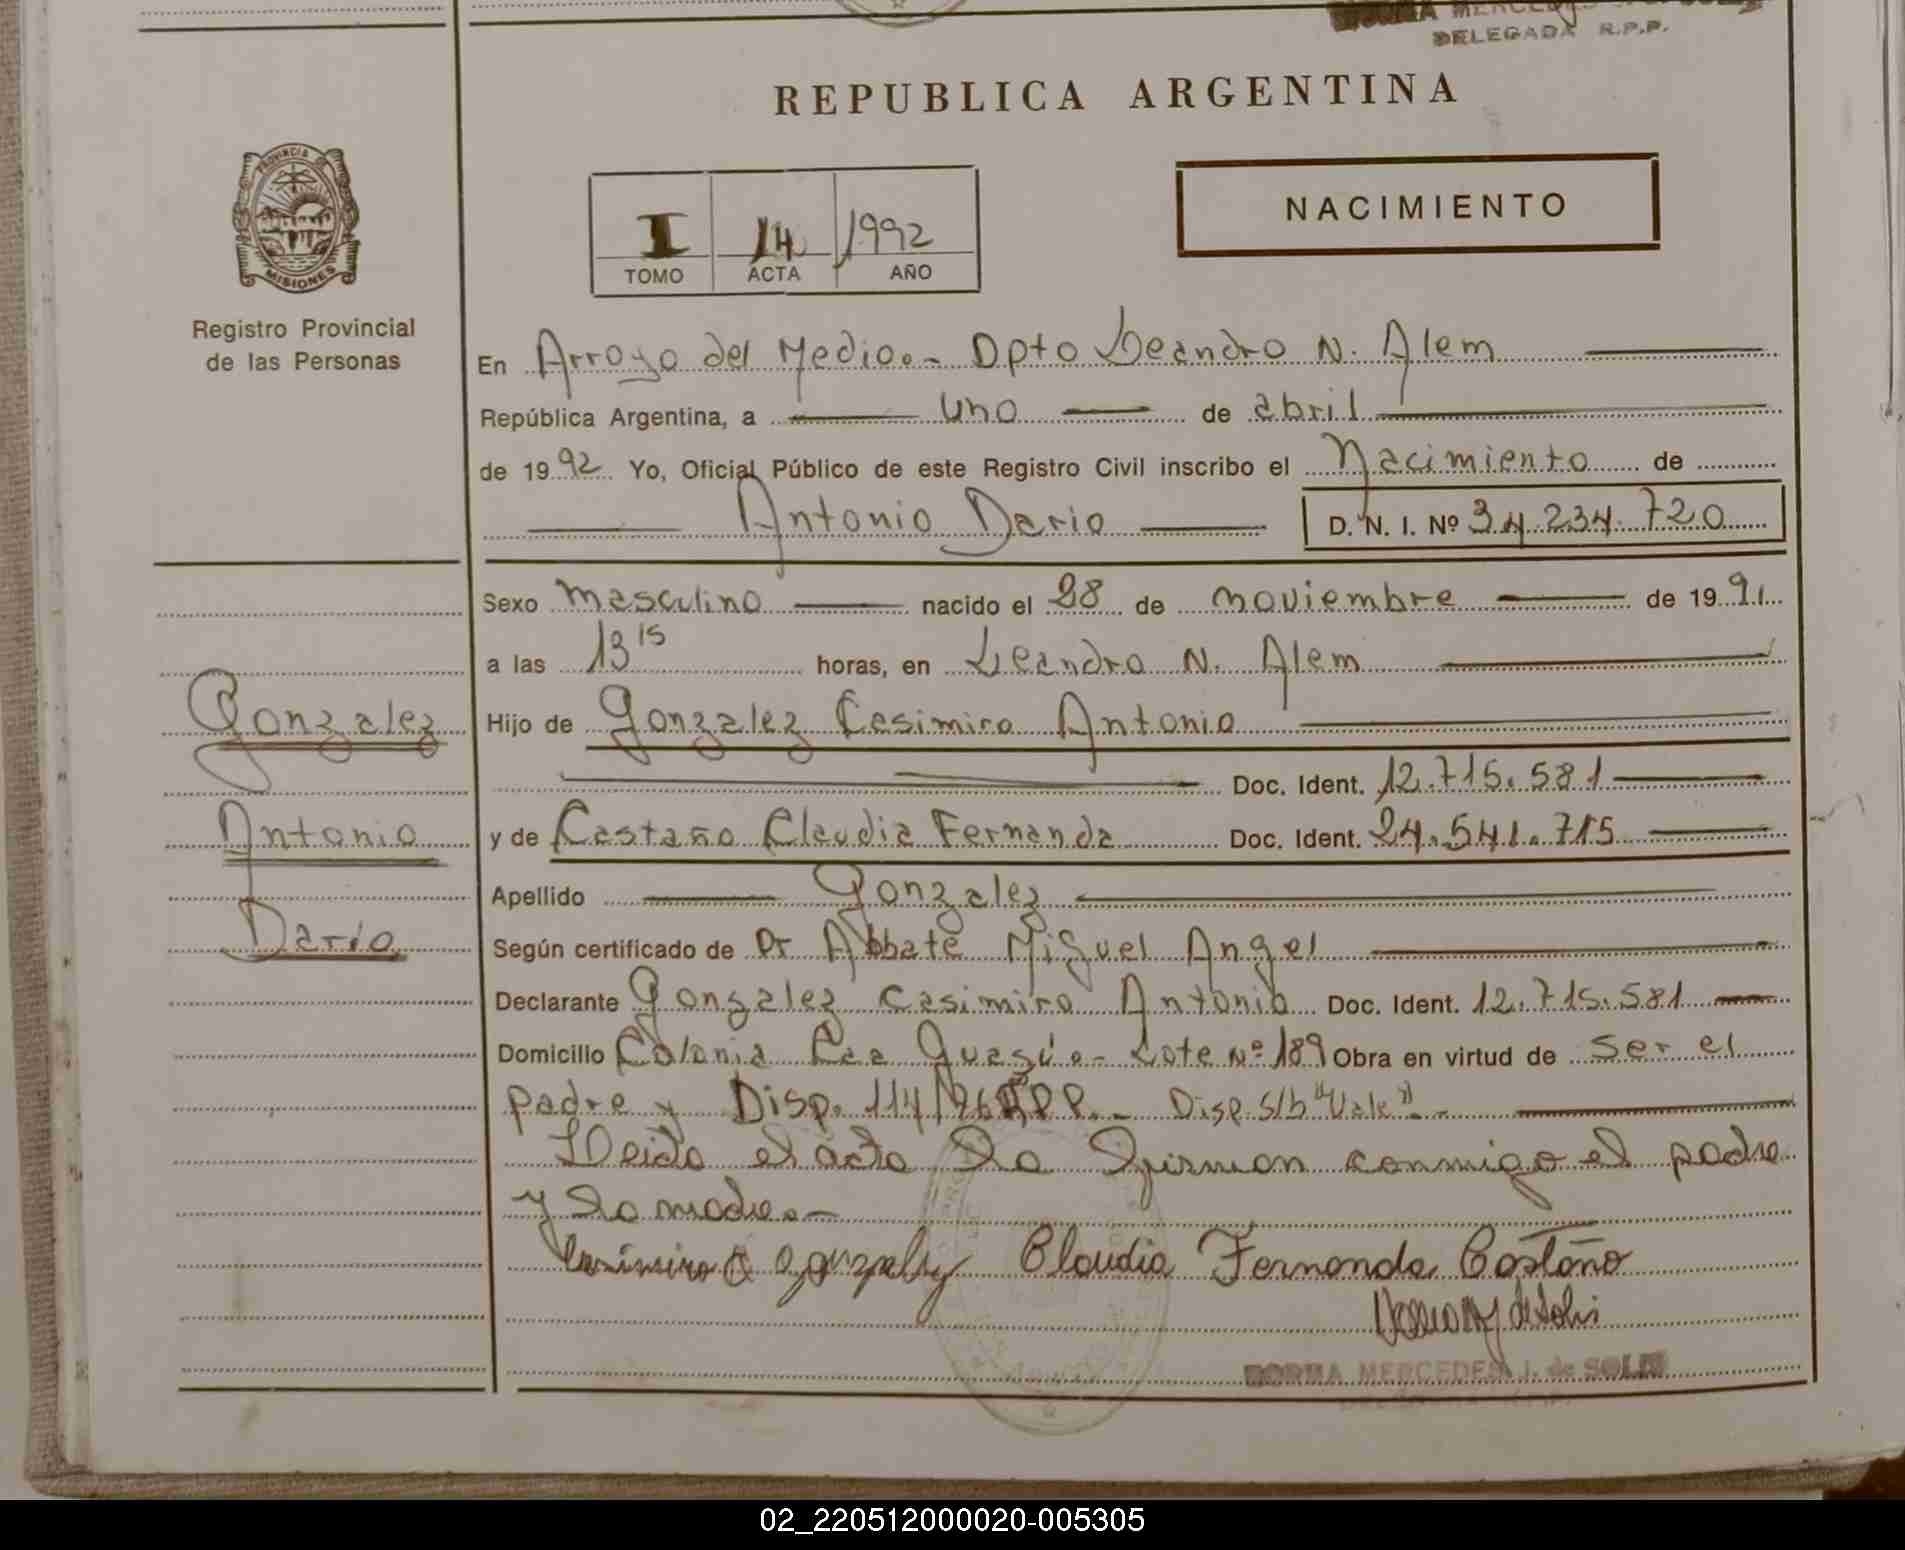 DELEGADA R.P.P.
REPUBLICA ARGENTINA
PROVINCIA
MISIONES
Registro Provincial
de las Personas
I 14 1992
TOMO ACTA AÑO
NACIMIENTO
En Arroyo del Medio.- Dpto Leandro N. Alem
República Argentina, a uno de abril
de 1992 Yo, Oficial Público de este Registro Civil inscribo el Nacimiento de
Antonio Dario D. N. I. Nº 34.234.720
Sexo masculino nacido el 28 de noviembre de 1991
a las 13 15 horas, en Leandro N. Alem
Gonzalez
Antonio
Dario
Hijo de Gonzalez Casimiro Antonio
Doc. Ident. 12.715.581
y de Castaño Claudia Fernanda Doc. Ident. 24.541.715
Apellido Gonzalez
Según certificado de Dr Abbate Miguel Angel
Declarante Gonzalez Casimiro Antonio Doc. Ident. 12.715.581
Domicilio Colonia Caa Guazú.- Lote Nº 189 Obra en virtud de ser el
padre y Disp. 114/96 RPP.- Disp. S/b "Vale".-
Leida el acta la firman conmigo el padre
y la madre.-
Casimiro A Gonzalez Claudia Fernanda Castaño
NORMA MERCEDES J. de SOLIS
02_220512000020-005305